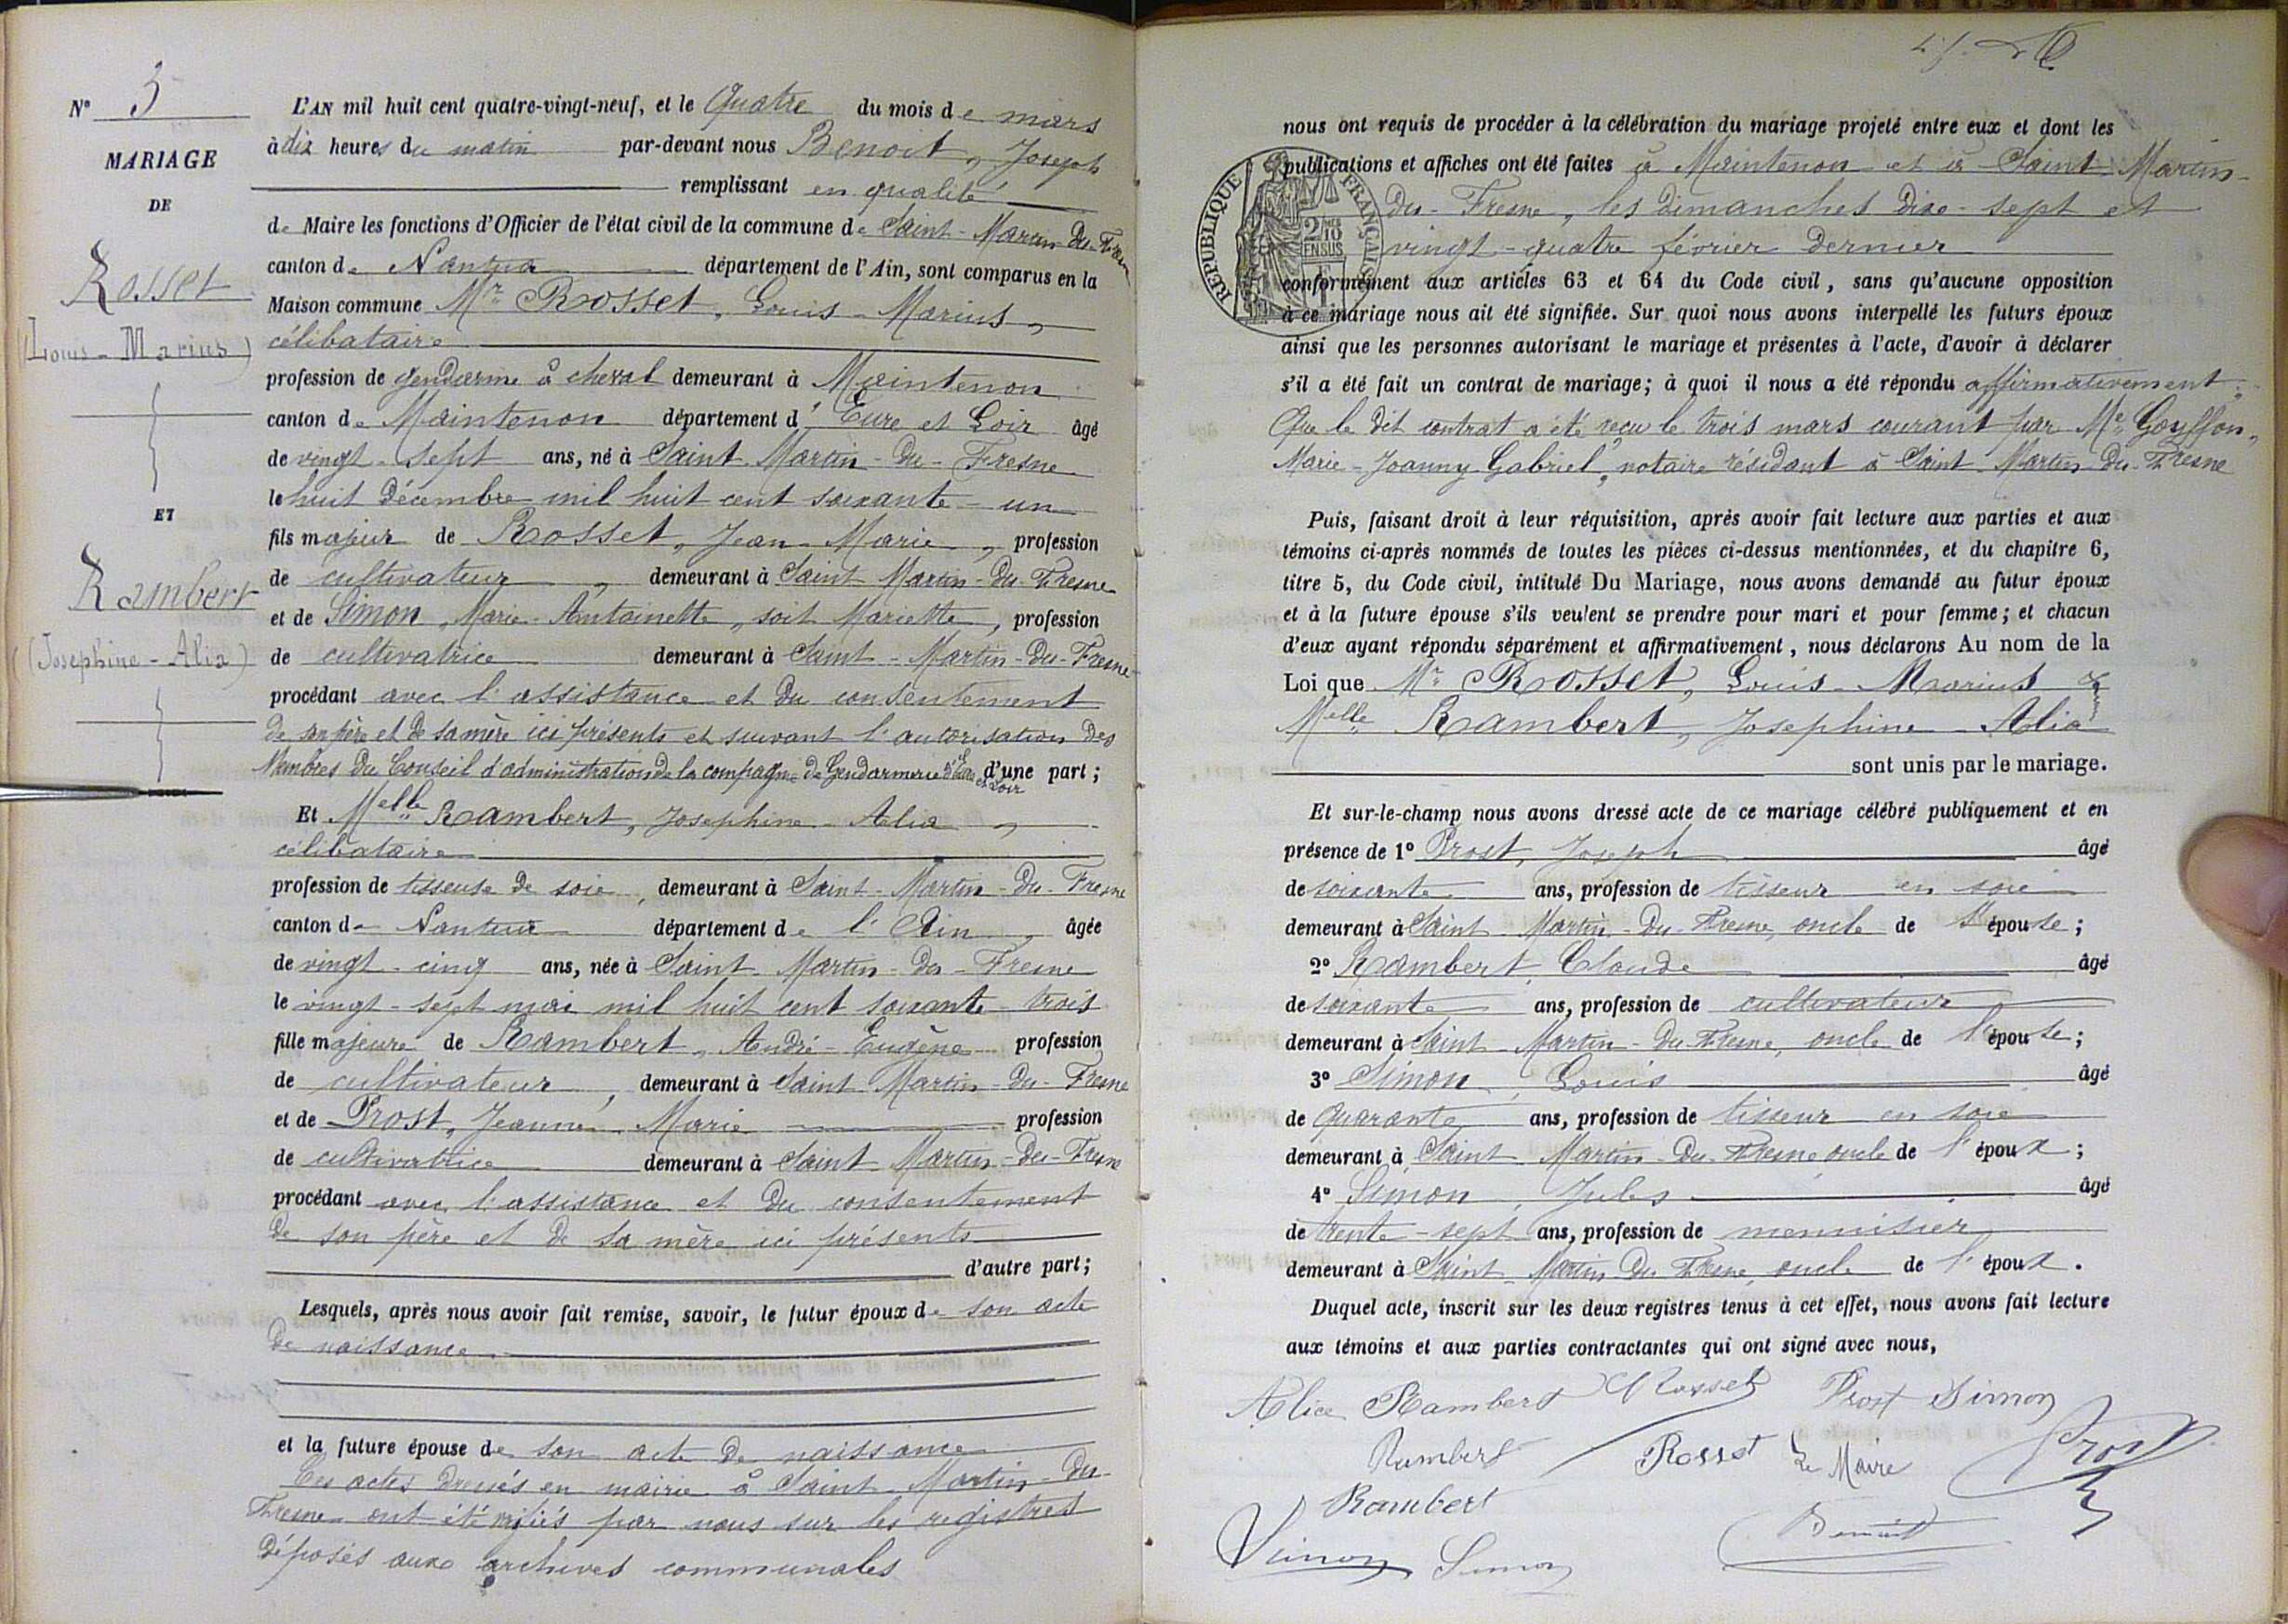 N° 3
MARIAGE
DE
Rosset
(Louis - Marius)
ET
Rambert
(Josephine - Alix)
L'AN mil huit cent quatre-vingt-neuf, et le Quatre du mois de mars
à dix heures du matin par-devant nous Benoit, Joseph
remplissant en qualité
de Maire les fonctions d'Officier de l'état civil de la commune de Saint-Martin-du-Fresne
canton de Nantua département de l'Ain, sont comparus en la
Maison commune Mr Rosset, Louis-Marius,
célibataire
profession de gendarme à cheval demeurant à Maintenon
canton de Maintenon département d'Eure et Loir âgé
de vingt-sept ans, né à Saint-Martin-du-Fresne
le huit Décembre mil huit cent soixante-un
fils majeur de Rosset, Jean-Marie, profession
de cultivateur, demeurant à Saint-Martin-du-Fresne
et de Simon, Marie-Antoinette, soit Mariette, profession
de cultivatrice demeurant à Saint-Martin-du-Fresne
procédant avec l'assistance et du consentement
de son père et de sa mère ici présents et suivant l'autorisation des
Membres du Conseil d'administration de la compagnie de Gendarmerie d'Eure et Loir d'une part ;
Et Melle Rambert, Josephine-Alix,
célibataire
profession de tisseuse de soie, demeurant à Saint-Martin-du-Fresne
canton de Nantua département de l'Ain, âgée
de vingt-cinq ans, née à Saint-Martin-du-Fresne
le vingt-sept mai mil huit cent soixante-trois
fille majeure de Rambert, André-Eugène profession
de cultivateur, demeurant à Saint-Martin-du-Fresne
et de Prost, Jeanne-Marie profession
de cultivatrice demeurant à Saint-Martin-du-Fresne
procédant avec l'assistance et du consentement
de son père et de sa mère ici présents
d'autre part ;
Lesquels, après nous avoir fait remise, savoir, le futur époux de son acte
de naissance.
et la future épouse de son acte de naissance
Ces actes dressés en mairie à Saint-Martin-du-
Fresne ont été vérifiés par nous sur les registres
déposés aux archives communales
nous ont requis de procéder à la célébration du mariage projeté entre eux et dont les
publications et affiches ont été faites à Maintenon et à Saint-Martin-
du-Fresne, les dimanches dix-sept et
vingt-quatre février dernier
RÉPUBLIQUE FRANÇAISE
2/10
EN SUS
conformément aux articles 63 et 64 du Code civil, sans qu'aucune opposition
à ce mariage nous ait été signifiée. Sur quoi nous avons interpellé les futurs époux
ainsi que les personnes autorisant le mariage et présentes à l'acte, d'avoir à déclarer
s'il a été fait un contrat de mariage ; à quoi il nous a été répondu affirmativement :
Que le dit contrat a été reçu le trois mars courant par Me Gouffon,
Marie-Joanny Gabriel, notaire résidant à Saint-Martin-du-Fresne
Puis, faisant droit à leur réquisition, après avoir fait lecture aux parties et aux
témoins ci-après nommés de toutes les pièces ci-dessus mentionnées, et du chapitre 6,
titre 5, du Code civil, intitulé Du Mariage, nous avons demandé au futur époux
et à la future épouse s'ils veulent se prendre pour mari et pour femme ; et chacun
d'eux ayant répondu séparément et affirmativement, nous déclarons Au nom de la
Loi que Mr Rosset, Louis-Marius &
Melle Rambert, Josephine-Alix
sont unis par le mariage.
Et sur-le-champ nous avons dressé acte de ce mariage célébré publiquement et en
présence de 1° Prost, Joseph âgé
de soixante ans, profession de tisseur en soie
demeurant à Saint-Martin-du-Fresne, oncle de l'épouse ;
2° Rambert, Claude âgé
de soixante ans, profession de cultivateur
demeurant à Saint-Martin-du-Fresne, oncle de l'épouse ;
3° Simon, Louis âgé
de Quarante ans, profession de tisseur en soie
demeurant à Saint-Martin-du-Fresne oncle de l'époux ;
4° Simon, Jules âgé
de trente-sept ans, profession de menuisier
demeurant à Saint-Martin-du-Fresne, oncle de l'époux.
Duquel acte, inscrit sur les deux registres tenus à cet effet, nous avons fait lecture
aux témoins et aux parties contractantes qui ont signé avec nous,
Alice Rambert Rosset Prost Simon
Rambert Rosset Le Maire Prost
Rambert Benoit
Simon Simon